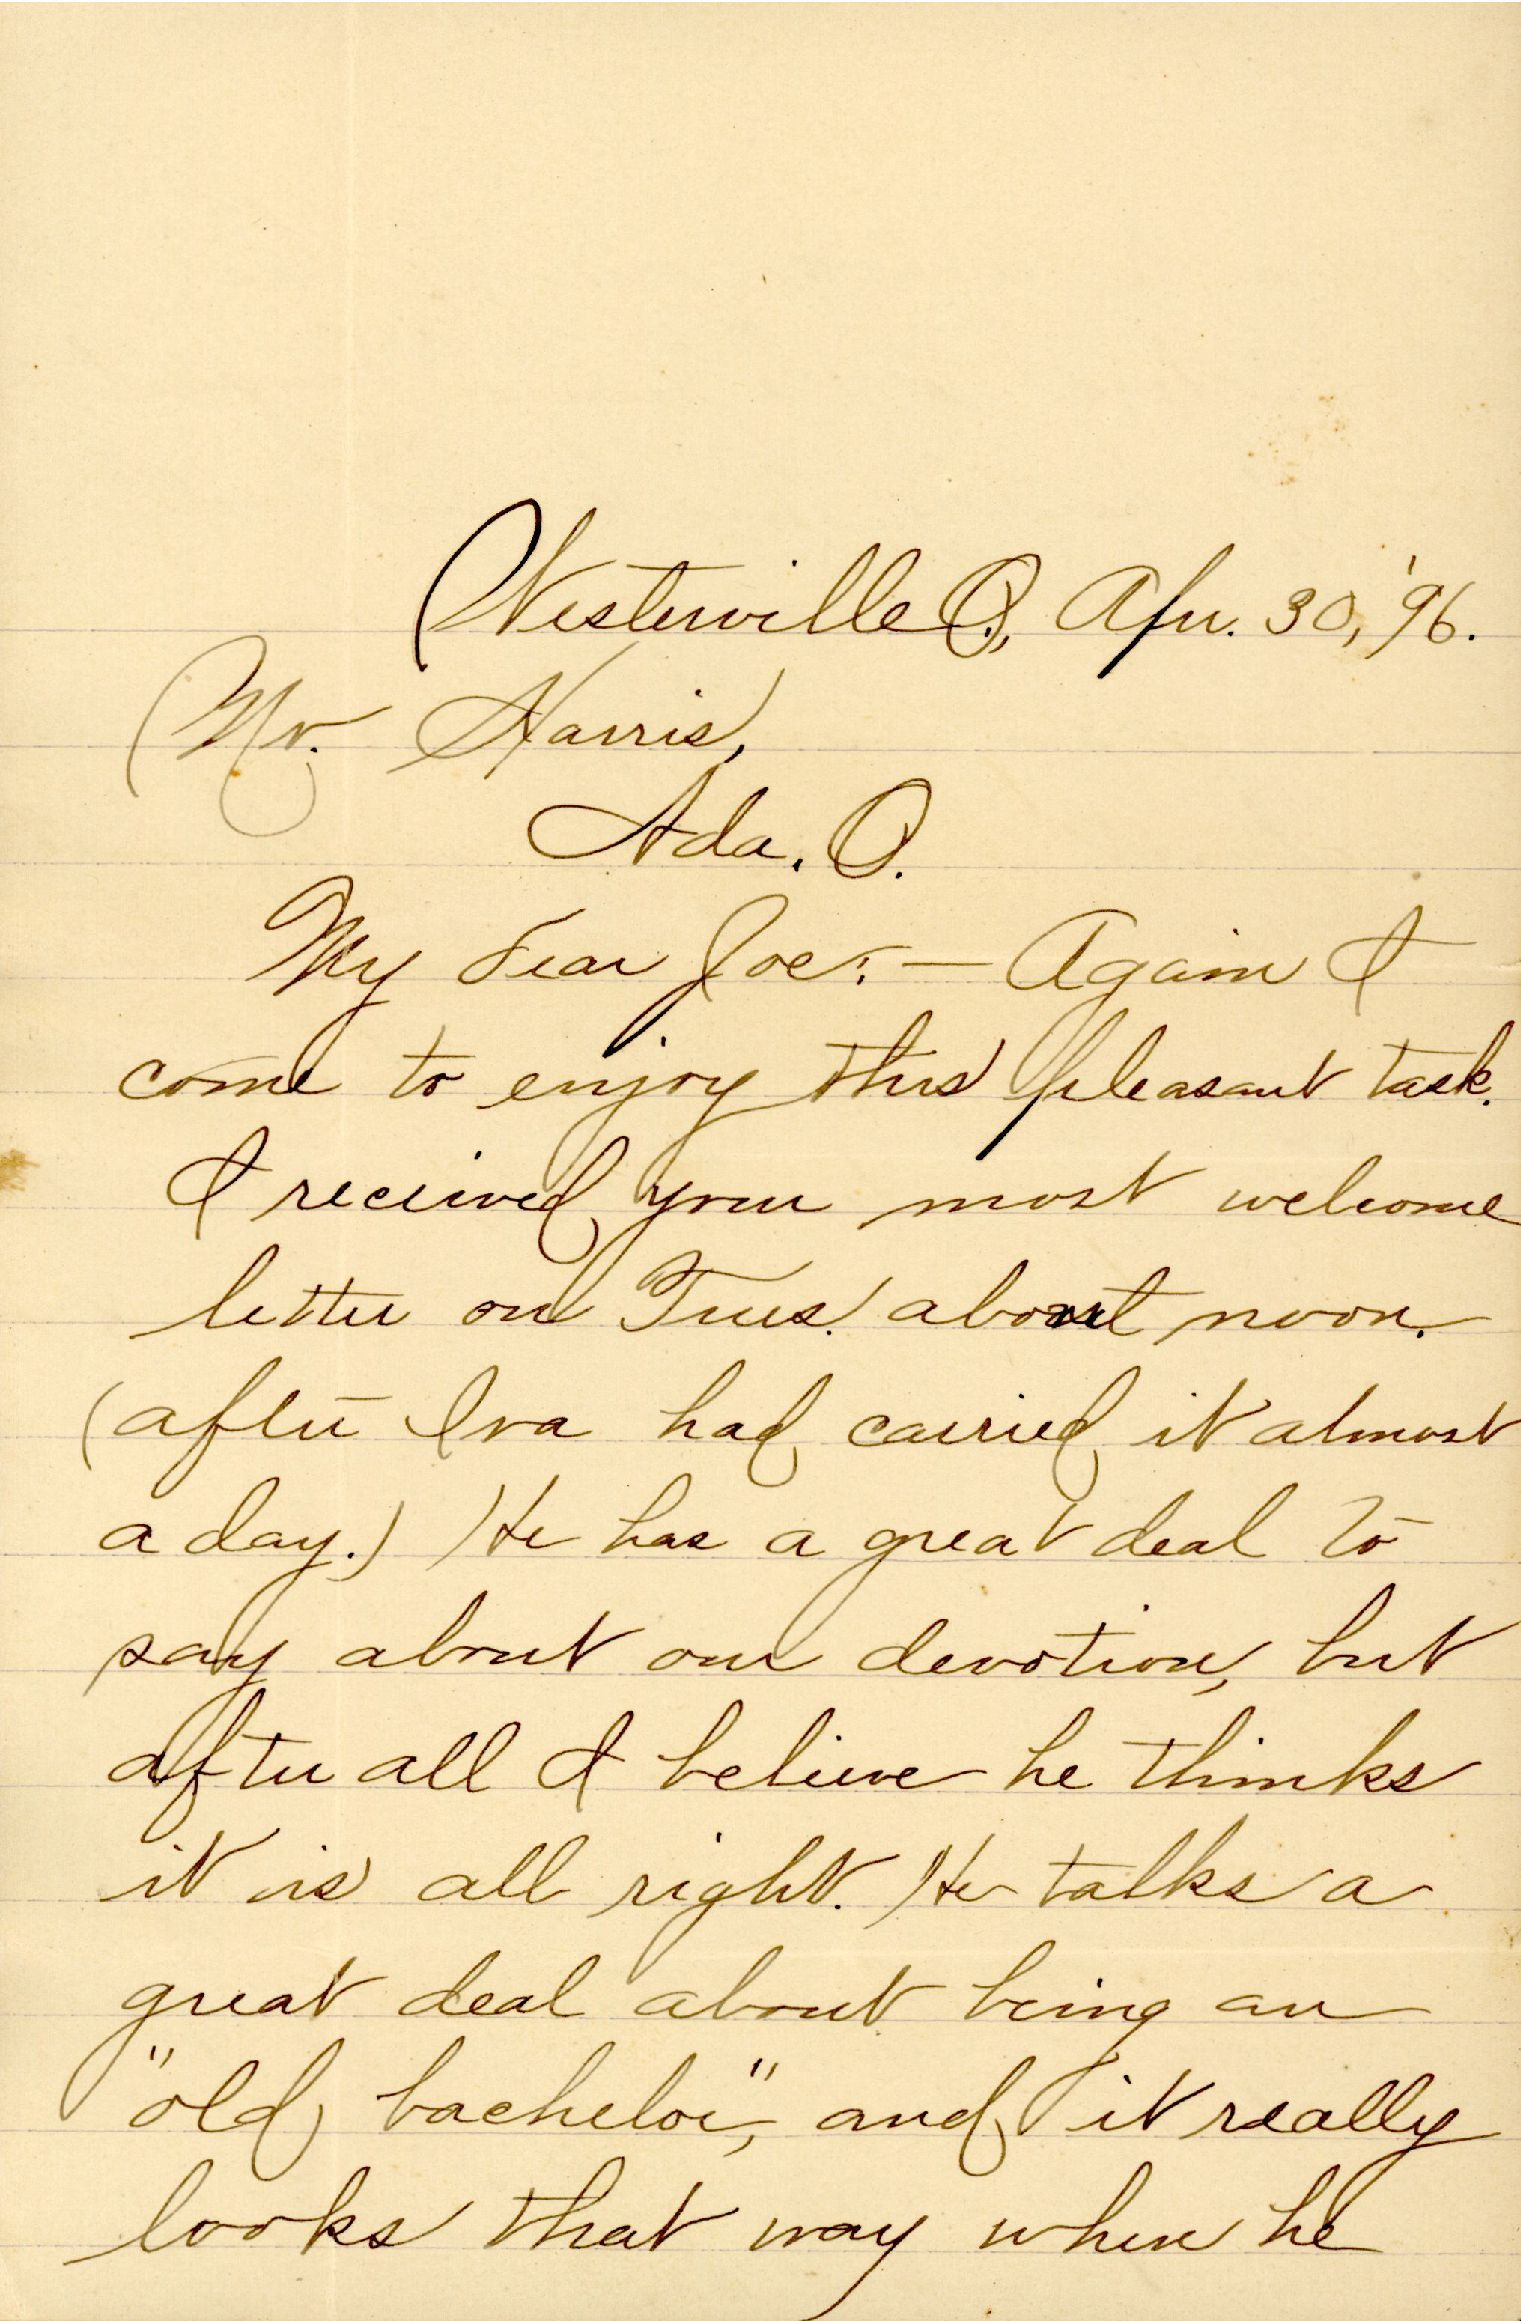 Westerville O., Apr. 30, '96.
Mr. Harris,
Ada. O.
My dear Joe: — Again I
come to enjoy this pleasant task.
I received your most welcome
letter on Tues. about noon.
(after Iva had carried it almost
a day.) He has a great deal to
say about our devotion, but
after all I believe he thinks
it is all right. He talks a
great deal about being an
"old bachelor", and it really
looks that way when he